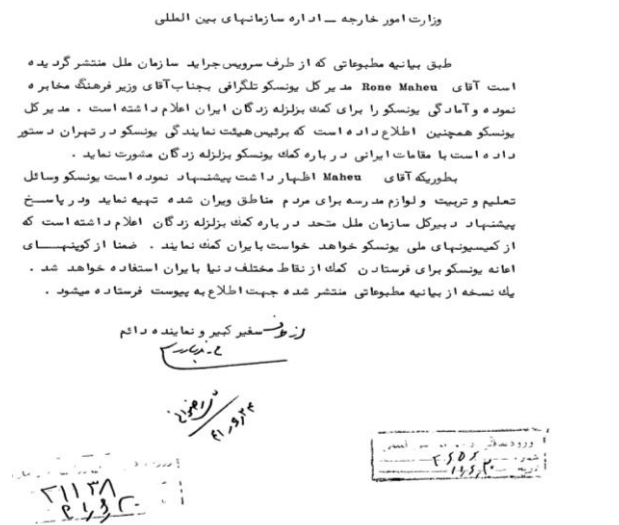 وزارت امور خارجه ــ اداره سازمانهای بین المللی
طبق بیانیه مطبوعاتی که از طرف سرویس جراید سازمان ملل منتشر گردیده
است آقای Rone Maheu مدیر کل یونسکو تلگرافی بجناب آقای وزیر فرهنگ مخابره
نموده و آمادگی یونسکو را برای کمك بزلزله زدگان ایران اعلام داشته است . مدیر کل
یونسکو همچنین اطلاع داده است که برئیس هیئت نمایندگی یونسکو در تهران دستور
داده است با مقامات ایرانی در باره کمك یونسکو بزلزله زدگان مشورت نماید .
بطوریکه آقای Maheu اظهار داشت پیشنهاد نموده است یونسکو وسائل
تعلیم و تربیت و لوازم مدرسه برای مردم مناطق ویران شده تهیه نماید ودر پاسخ
پیشنهاد دبیرکل سازمان ملل متحد در باره کمك بزلزله زدگان اعلام داشته است که
از کمیسیونهای ملی یونسکو خواهد خواست بایران کمك نمایند . ضمنا از کوپنهای
اعانه یونسکو برای فرستادن کمك از نقاط مختلف دنیا بایران استفاده خواهد شد .
یك نسخه از بیانیه مطبوعاتی منتشر شده جهت اطلاع به پیوست فرستاده میشود .
از طرف سفیر کبیر و نماینده دائم
ورود بدفتر
۲۱۱۳۸